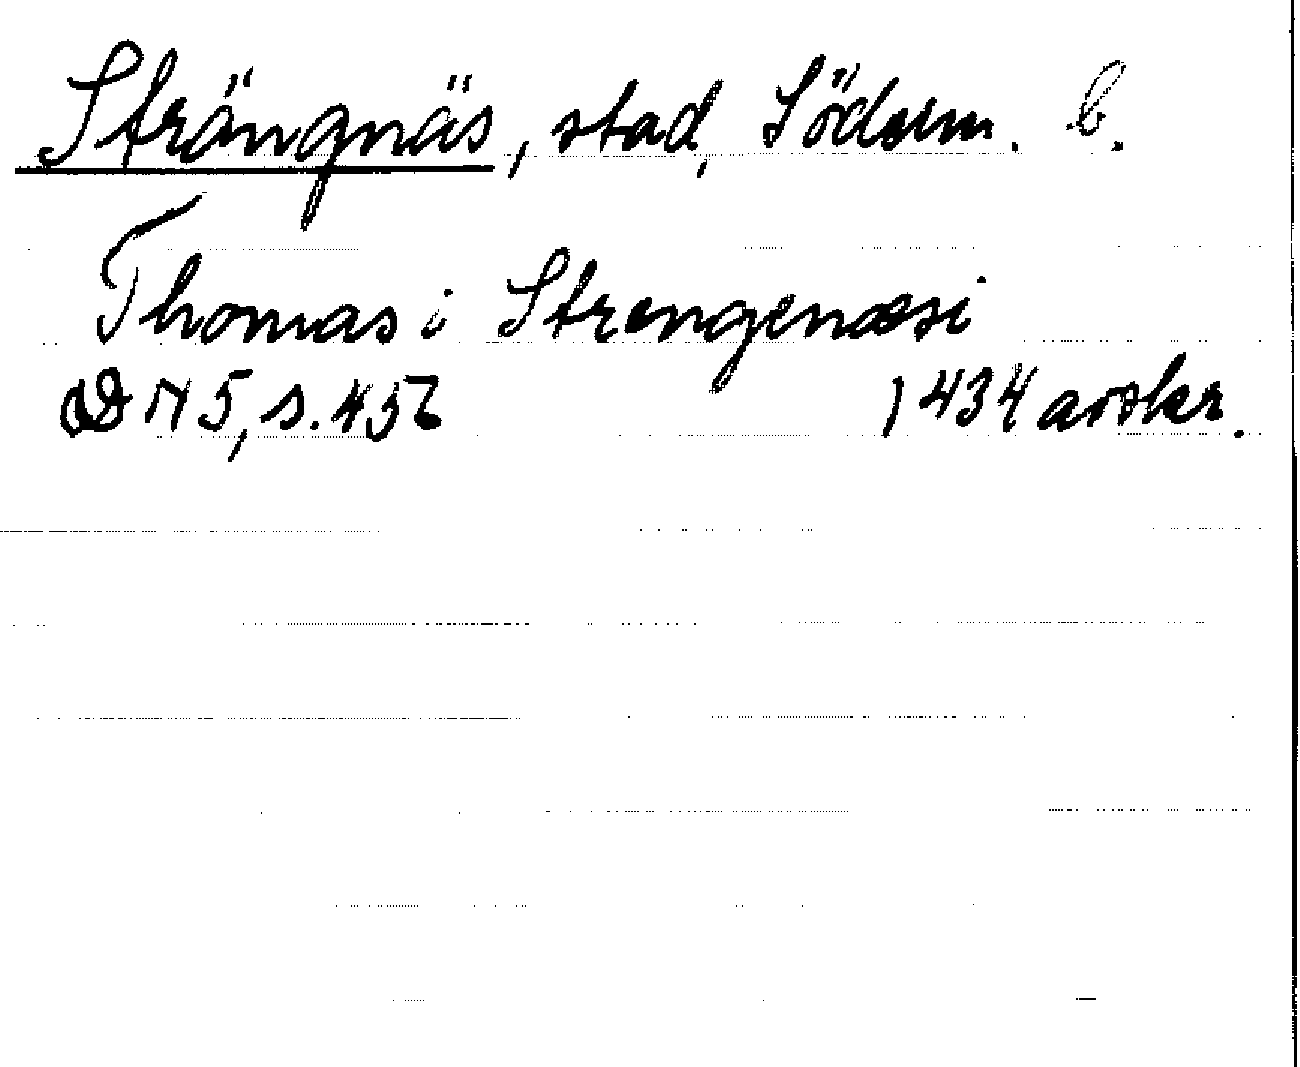 Strängnäs, stad, Söderm. l.
Thomas i Strengenæsi
DN 5, s. 456 1434 avskr.